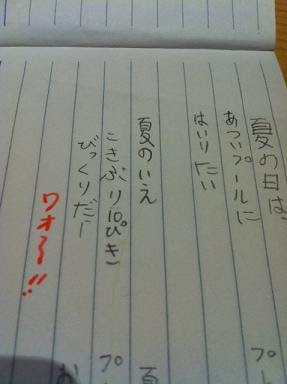 夏の日は、
あついプールに
はいりたい
夏のいえ
こきぶり10ぴき
びっくりだ
ワオ〜!!
プ
夏
プ